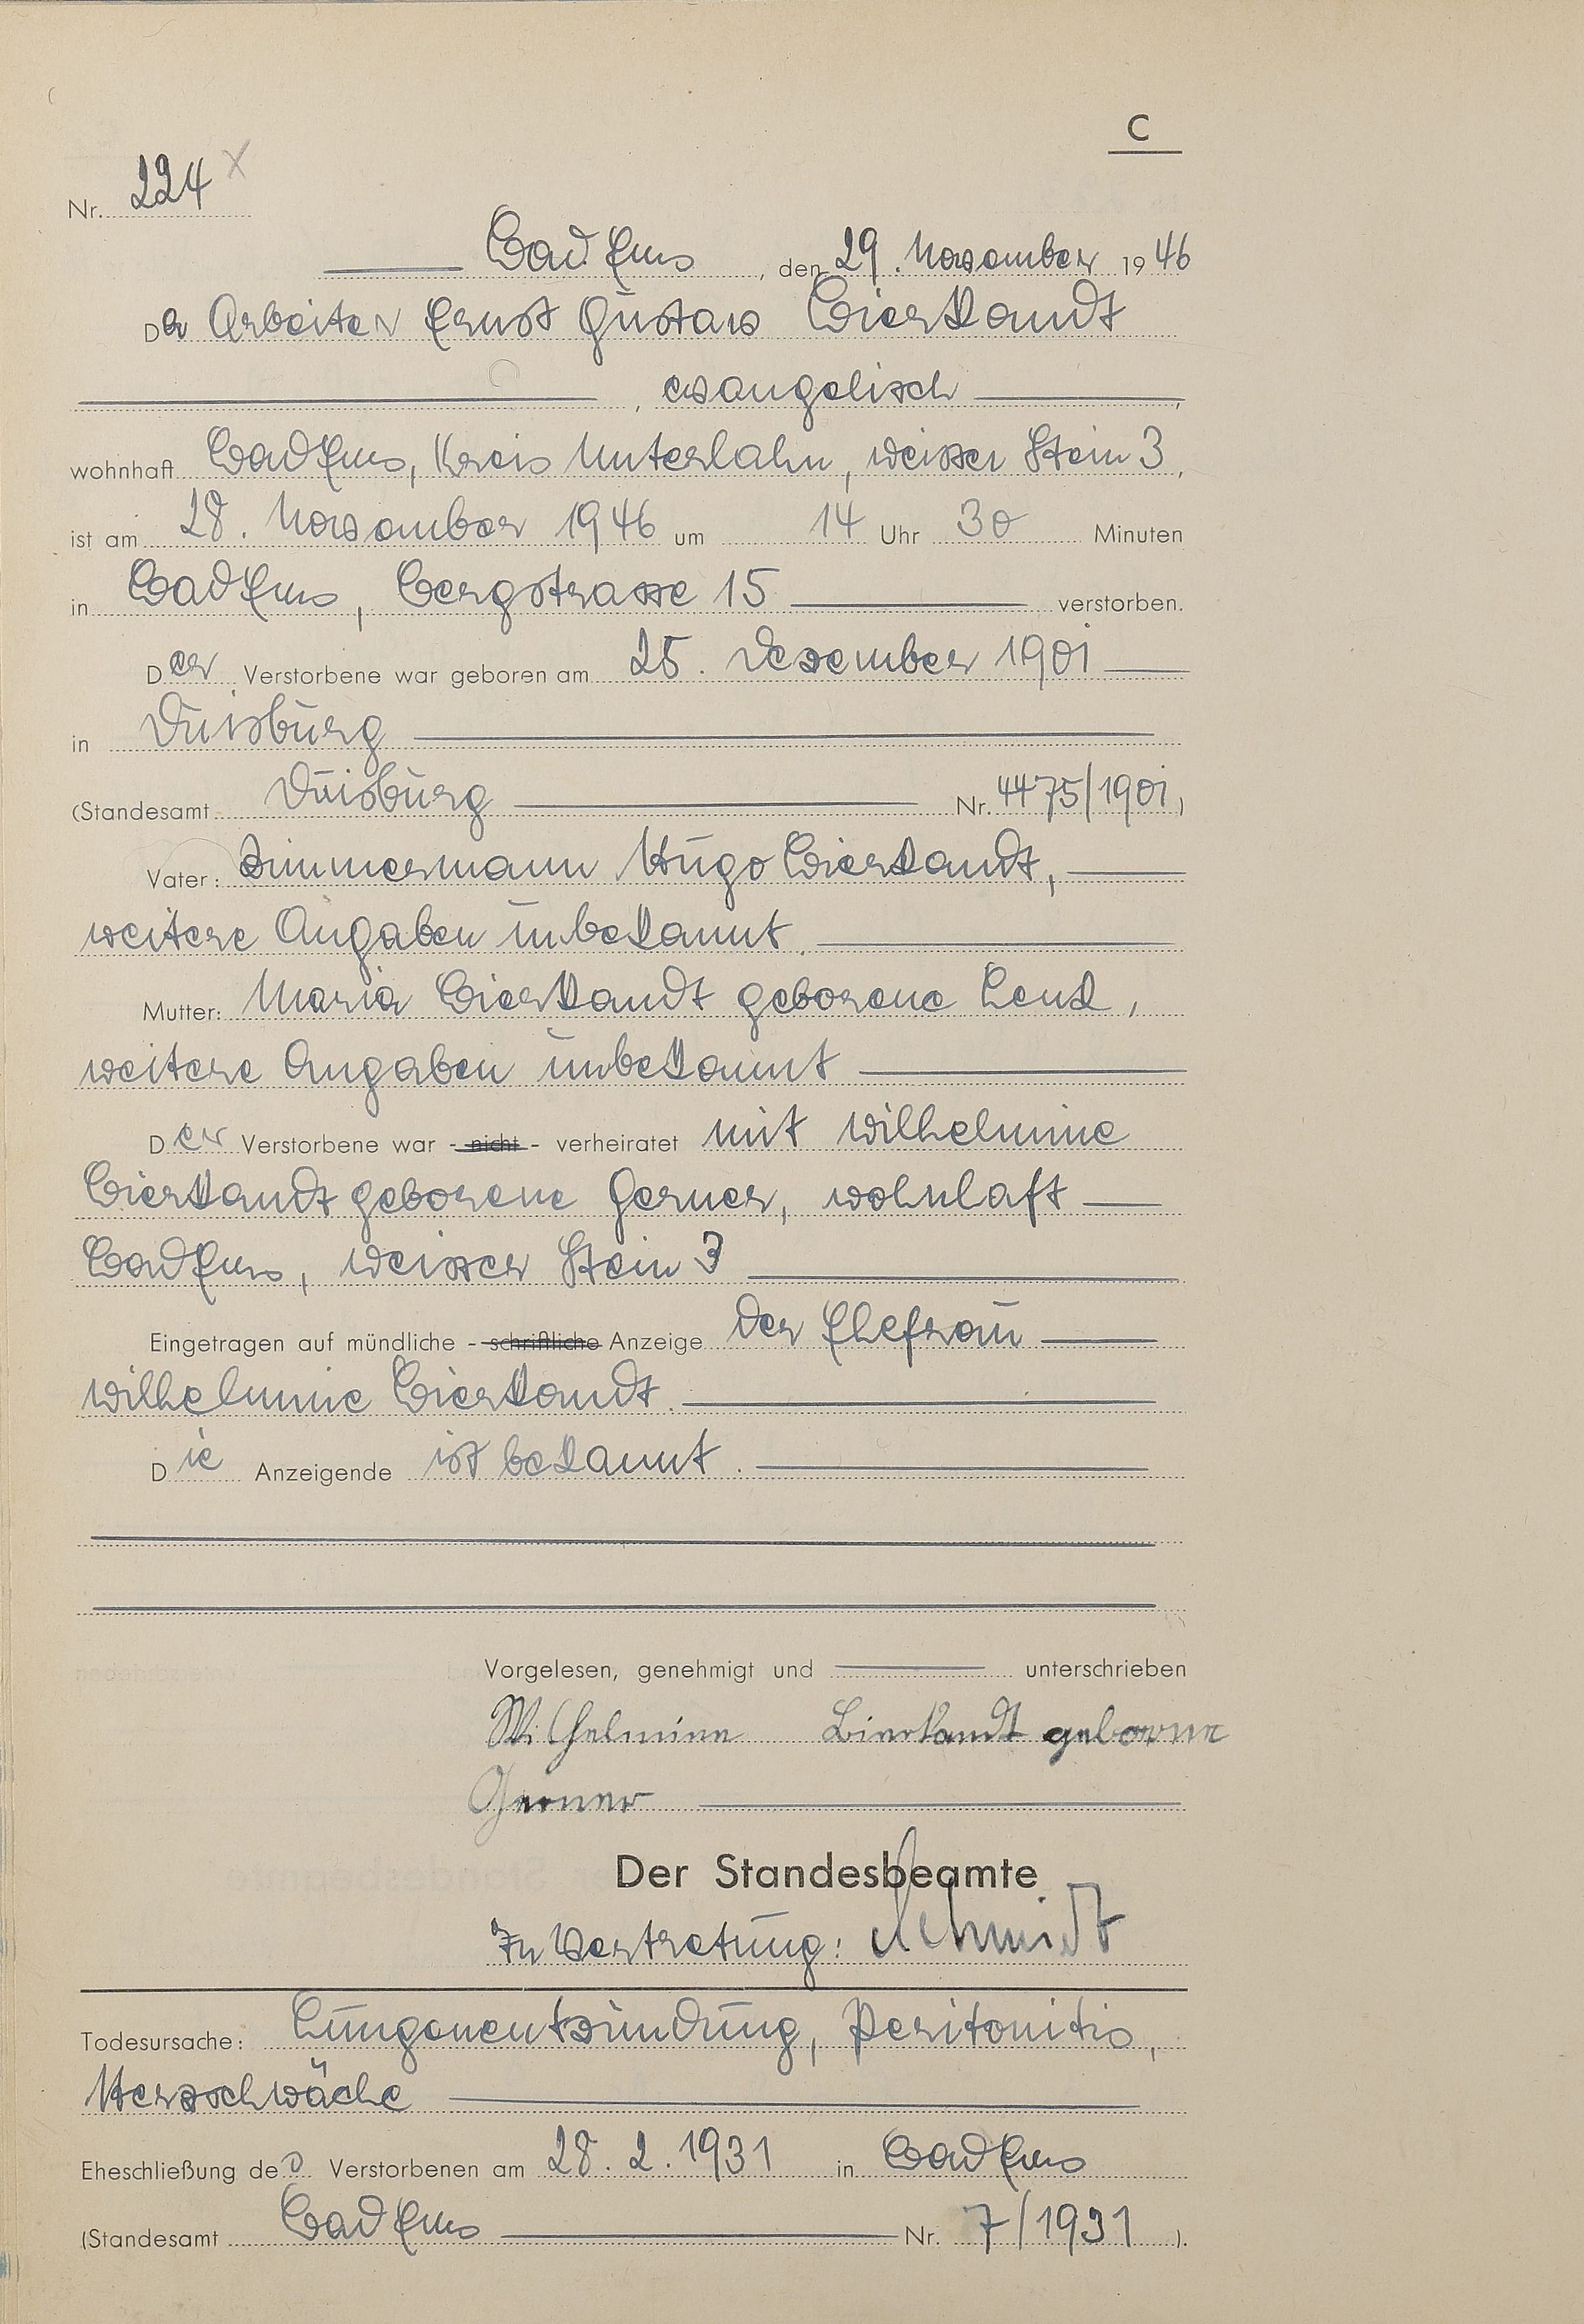 C
Nr. 224
Bad Ems, den 29. November 1946
Der Arbeiter Ernst Gustav Bierkandt
, evangelisch,
wohnhaft Bad Ems, Kreis Unterlahn, weisser Stein 3,
ist am 28. November 1946 um 14 Uhr 30 Minuten
in Bad Ems, Bergstrasse 15 verstorben.
Der Verstorbene war geboren am 25. Dezember 1901
in Duisburg
(Standesamt Duisburg Nr. 4475/1901)
Vater: Zimmermann Hugo Bierkandt,
weitere Angaben unbekannt.
Mutter: Maria Bierkandt geborene Lenk,
weitere Angaben unbekannt
Der Verstorbene war - nicht - verheiratet mit Wilhelmine
Bierkandt geborene Gerner, wohnhaft
Bad Ems, weisser Stein 3
Eingetragen auf mündliche - schriftliche Anzeige der Ehefrau
Wilhelmine Bierkandt.
Die Anzeigende ist bekannt.
Vorgelesen, genehmigt und unterschrieben
Wilhelmine Bierkandt geborne
Gerner
Der Standesbeamte
In Vertretung: Schmidt
Todesursache: Lungenentzündung, Peritonitis,
Herzschwäche
Eheschließung des Verstorbenen am 28. 2. 1931 in Bad Ems
(Standesamt Bad Ems Nr. 7/1931).